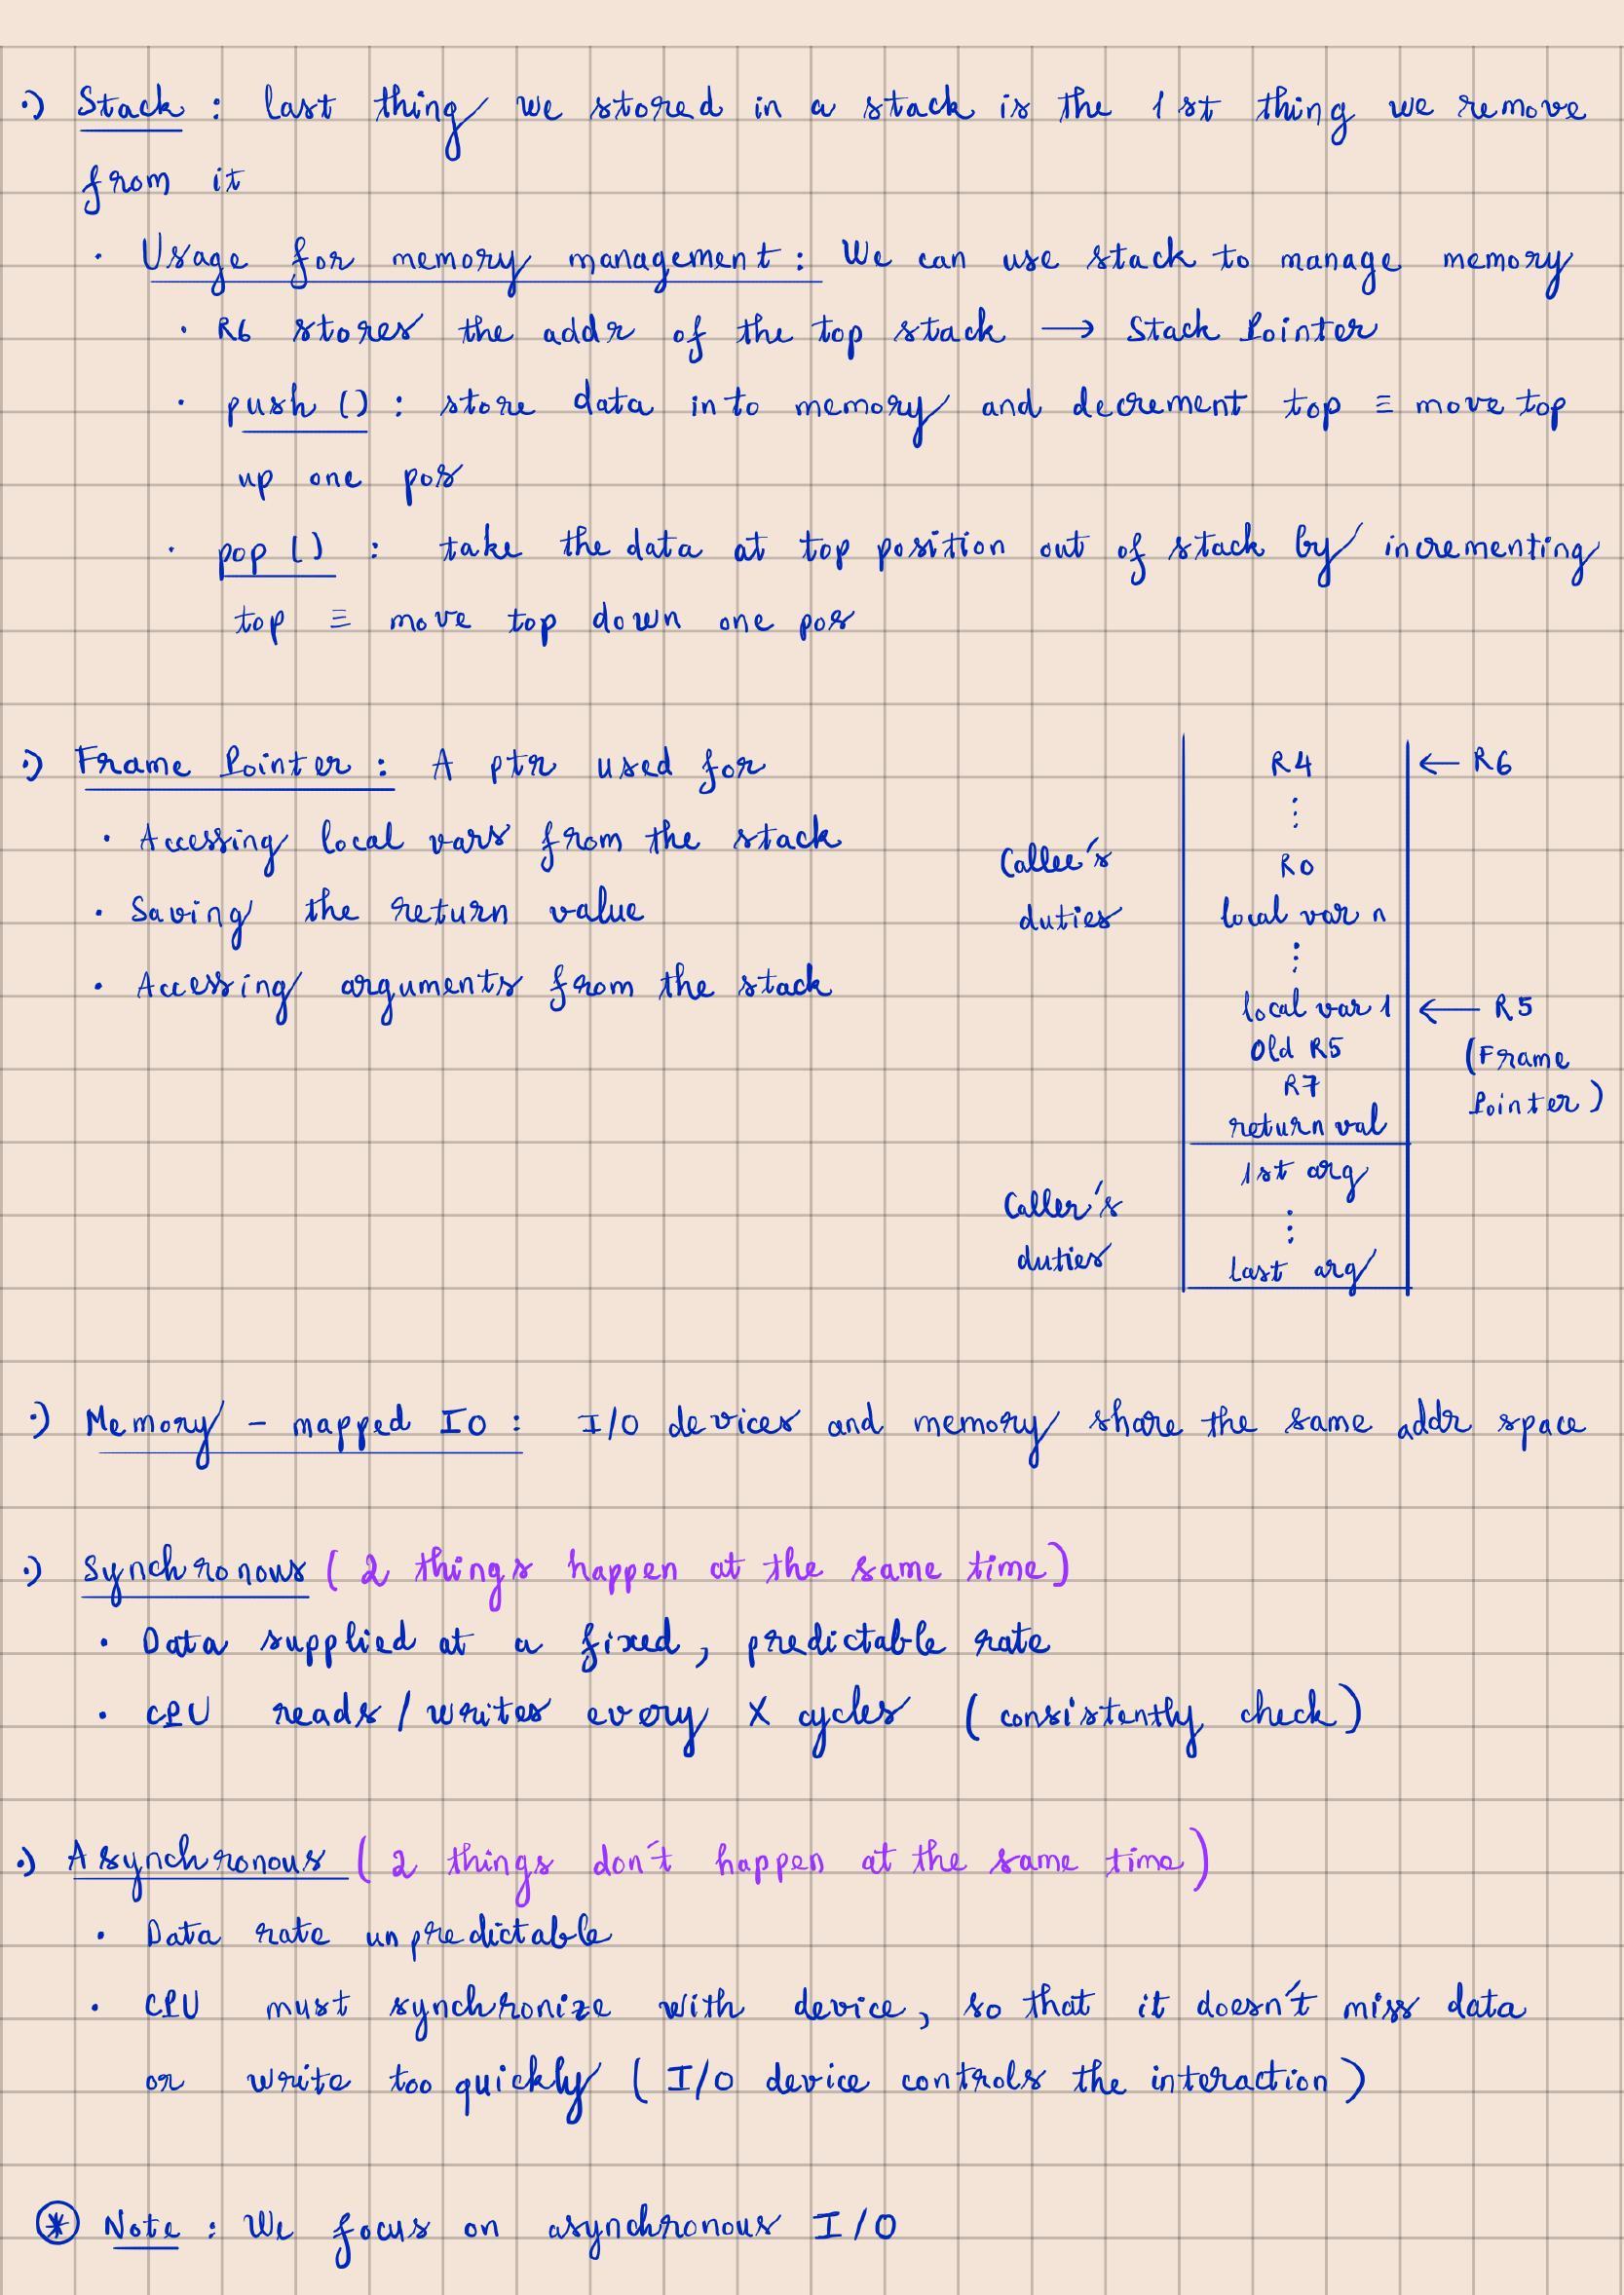 ·) Stack : last thing we stored in a stack is the 1st thing we remove
from it
· Usage for memory management : We can use stack to manage memory
· R6 stores the addr of the top stack → Stack Pointer
· push () : store data into memory and decrement top ≡ move top
up one pos
· pop () : take the data at top position out of stack by incrementing
top ≡ move top down one pos
·) Frame Pointer : A ptr used for
· Accessing local vars from the stack
· Saving the return value
· Accessing arguments from the stack
Callee's
duties
Caller's
duties
R4 ← R6
⋮
R0
local var n
⋮
local var 1 ← R5
Old R5 (Frame
R7 Pointer)
return val
1st arg
⋮
last arg
·) Memory - mapped IO : I/O devices and memory share the same addr space
·) Synchronous (2 things happen at the same time)
· Data supplied at a fixed, predictable rate
· CPU reads/writes every X cycles (consistently check)
·) Asynchronous (2 things don't happen at the same time)
· Data rate unpredictable
· CPU must synchronize with device, so that it doesn't miss data
or write too quickly (I/O device controls the interaction)
* Note : We focus on asynchronous I/O